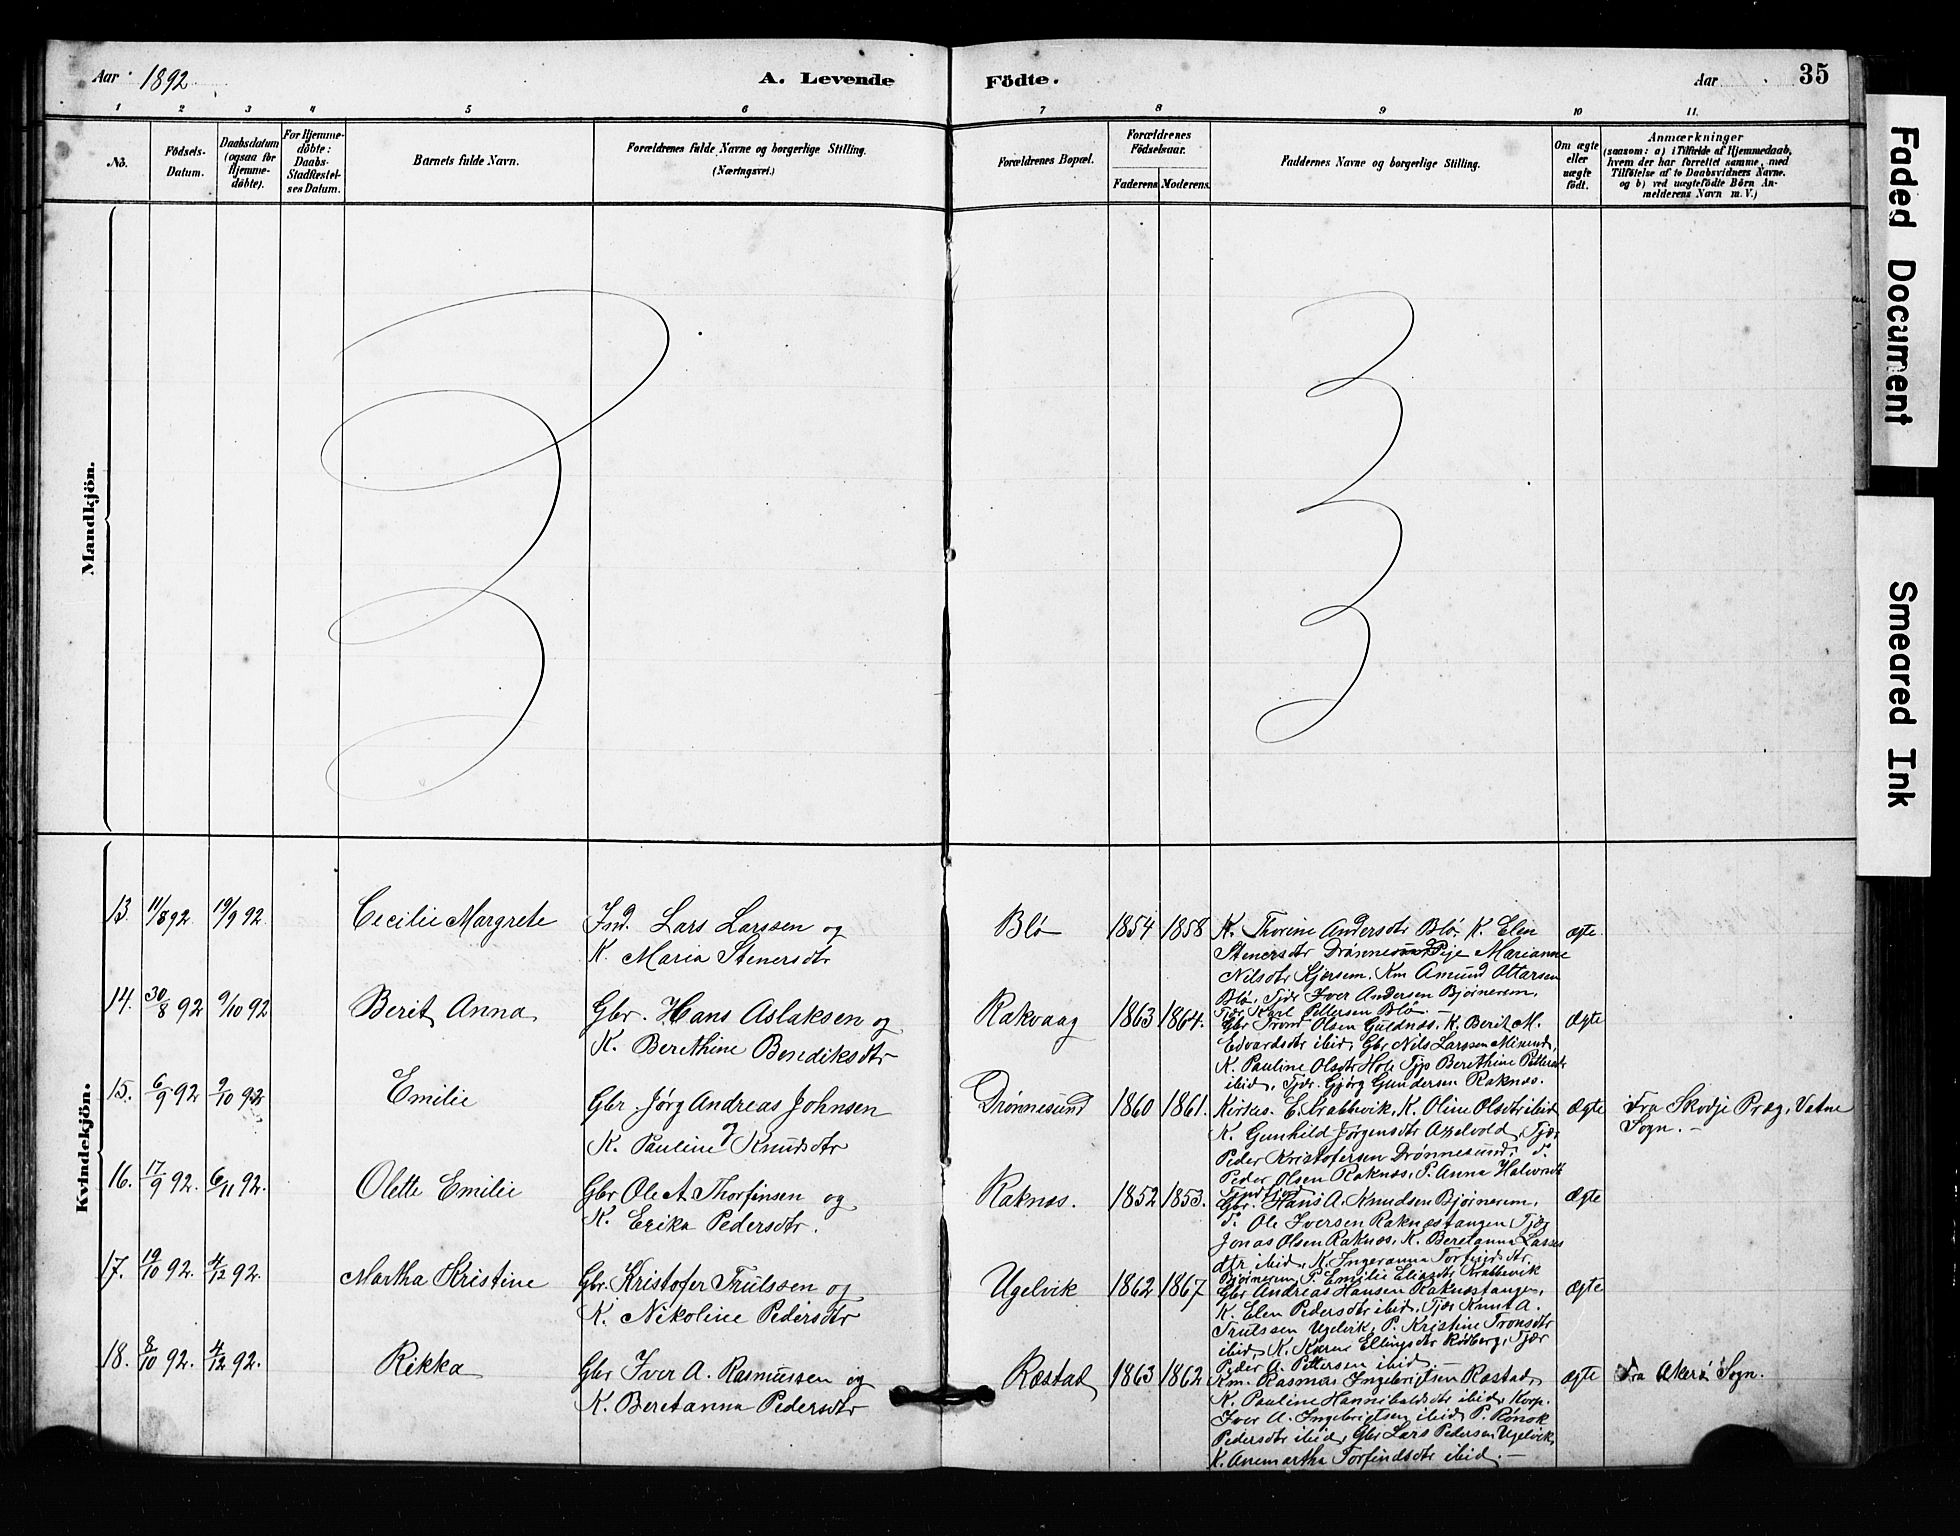 Aar 1892 A. Levende Födte. Aar 35
1 2 3 4 5 6 7 8 9 10 11.
No. Födsels-Datum. Daabsdatum (ogsaa for Hjemme-döbte). For Hjemme-döbte: Daabs-Stadfæstel-ses Datum. Barnets fulde Navn. Forældrenes fulde Navne og borgerlige Stilling. (Næringsvei.) Forældrenes Bopæl. Forældrenes Födselsaar. Faderens Moderens Faddernes Navne og borgerlige Stilling. Om ægte eller uægte födt. Anmærkninger (saasom: a) i Tilfælde af Hjemmedaab, hvem der har forrettet samme, med Tilföielse af to Daabsvidners Navne, og b) ved uægtefödte Börn An-melderens Navn m. V.)
Mandkjön.
Kvindekjön.
13. 11/8 92. 19/9 92. Cecilie Margrete Ind. Lars Larssen og Blø 1854 1858 K. Thorine Andersdtr Blø. K. Elen ægte.
K. Maria Stenersdtr Stenersdtr Drønnesund Pije Marianne
Nilsdtr Kjørsem, Km Amund Ottarsen
Blø, Tjdr Iver Andersen Bjørnerem,
Tjdr Karl Pettersen Blø. —
14. 30/8 92 9/10 92 Berit Anna Gbr. Hans Aslaksen og Rakvaag 1863 1864. Gbr Trond Olsen Guldnæs. K. Berit M. Ægte
K. Berethine Bendiksdtr Edvardsdtr ibid, Gbr Nils Larssen Misund,
K. Pauline Olsdtr Hole Tjp Berethine Pettersdtr
ibid, Tjdr. Gjørg Gundersen Raknæs.
15. 6/9 92 9/10 92 Emilie Gbr Jørg Andreas Johnsen Drønnesund 1860 1861. Kirkes. E. Krabbevik, K. Oline Olsdtr ibid Ægte Fra Skodje Præg, Vatne
K. Pauline J Knudsdtr K. Gunhild Jørgensdtr Axelvold, Tjdr Sogn. —
Peder Kristofersen Drønnesund, T.
Peder Olsen Raknæs, P. Anna Halvorsdtr
16. 17/9 92. 6/11 92. Olette Emilie Gbr Ole A. Thorfinsen og Raknæs. 1852 1853. Gbr. Hans A. Knudsen Bjørnerem, Ægte
K. Erika Pedersdtr. T. Ole Iversen Raknæstangen Tjdr
Jonas Olsen Raknæs, K. Beretanna Lasses
dtr ibid, K. Ingeranna Torfindsdtr.
Bjørnerem P. Emilie Eliasdtr Krabbevik
17. 19/10 92. 4/12 92. Martha Kristine Gbr. Kristofer Trulssen og Ugelvik 1862 1867 Gbr Andreas Hansen Raknæstangen, ægte
K. Nikoline Pedersdtr K. Elen Pedersdtr ibid, Tjdr Knut A.
Trulssen Ugelvik, P. Kristine Tronsdtr
ibid, K. Karen Ellingsdtr Rødberg, Tjdr
Peder A. Pettersen ibid. —
18. 8/10 92. 4/12 92. Rikka Gbr Iver A. Rasmussen og Røstad 1863 1862 Km. Rasmus Ingebrigtsen Røstad, ægte Fra Akerø Sogn.
K. Beretanna Pedersdtr K. Pauline Hannibalsdtr ibid, Korp.
Iver A. Ingebrigtsen ibid, P. Rønok
Pedersdtr ibid, Gbr Lars Pedersen Ugelvik,
K. Anemartha Torfindsdtr ibid. —
Faded Document
Smeared Ink